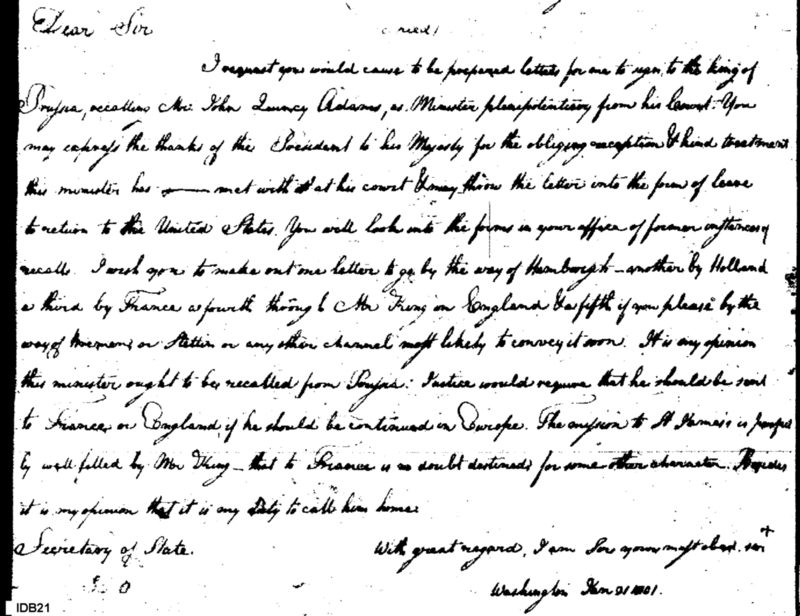 Dear Sir
I request you would cause to be prepared letters for me to sign, to the King of
Prussia, recalling Mr. John Quincy Adams, as Minister plenipotentiary from his Court. You
may express the thanks of the President to his Majesty for the obliging reception & kind treatment
this minister has met with at his court & may throw the letter into the form of leave
to return to the United States. You will look into the forms in your office of former instances of
recall. I wish you to make out one letter to go by the way of Hamburgh – another by Holland
a third by France a fourth through Mr King in England & a fifth if you please by the
way of Bremen or Stettin or any other channel most likely to convey it soon. It is my opinion
this minister ought to be recalled from Prussia. Justice would require that he should be sent
to France or England if he should be continued in Europe. The mission to St James's is perfect
ly well filled by Mr King – that to France is no doubt destined for some other character. Besides
it is my opinion that it is my duty to call him home.
Secretary of State. With great regard, I am Sir your most obed. ser
Washington Jan 31 1801.
IDB21